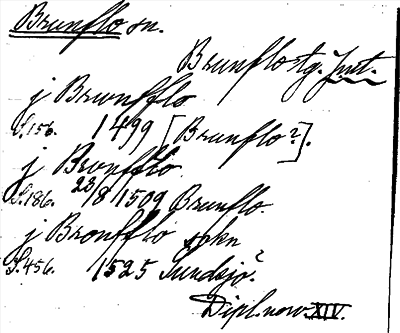 Brunflo sn.
Brunflo tg. Jmt.
j Brwnfflo
S. 156. 1499 [Brunflo?].
j Brunfflo
S. 186. 23/8 1509 Brunflo.
j Bronfflo sokn
S. 456. 1525 Sundsjö?
Dipl. norv. XIV.